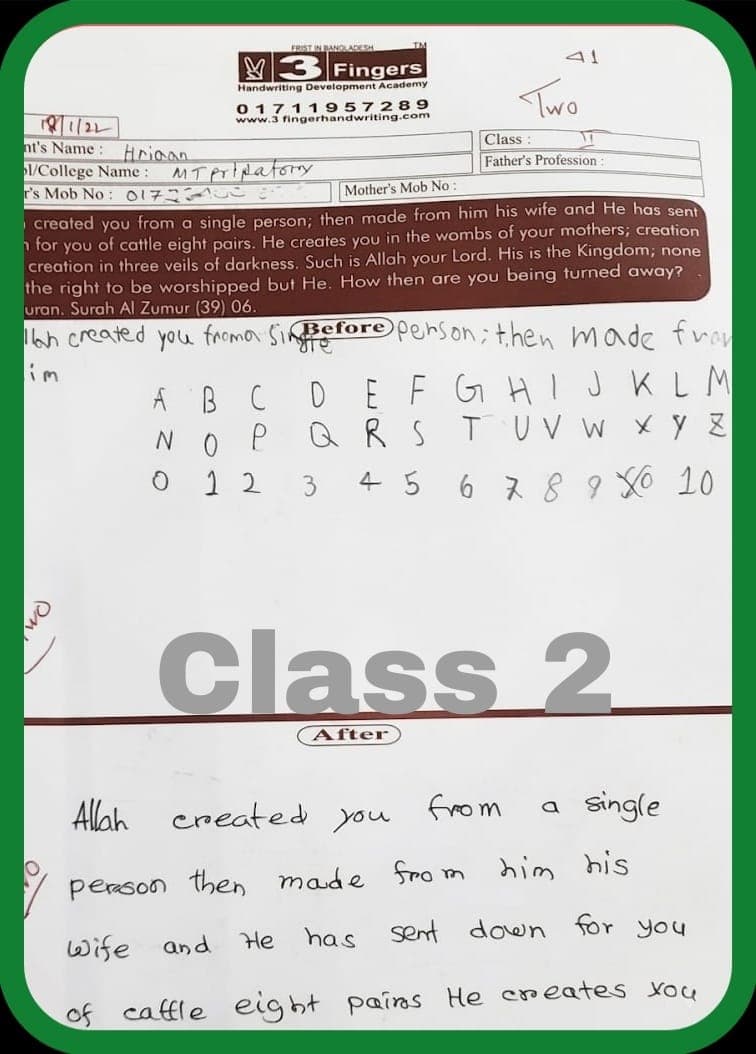 FRIST IN BANGLADESH TM
3 Fingers
Handwriting Development Academy
01711957289
www.3 fingerhandwriting.com
Two
18/1/22
nt's Name : Hriaan
Class : II
l/College Name :
Father's Profession :
r's Mob No :
Mother's Mob No :
created you from a single person; then made from him his wife and He has sent
for you of cattle eight pairs. He creates you in the wombs of your mothers; creation
creation in three veils of darkness. Such is Allah your Lord. His is the Kingdom; none
the right to be worshipped but He. How then are you being turned away?
uran. Surah Al Zumur (39) 06.
Before
llah created you froma Single person; then made from
im
A B C D E F G H I J K L M
N O P Q R S T U V W X Y Z
0 1 2 3 4 5 6 7 8 9 10
wo
Class 2
After
Allah created you from a single
person then made from him his
wife and He has sent down for you
of cattle eight pairs He creates you